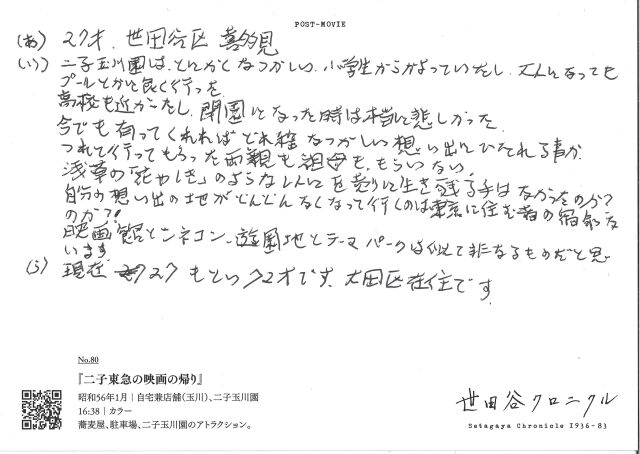 POST-MOVIE
(あ) 27才、世田谷区 喜多見
(い) 二子玉川園は、とにかくなつかしい、小学生からかよっていたし、大人になっても
プールとかと良く行った
高校も近かったし、閉園になった時は本当に悲しかった
今でも有ってくれればどれ程なつかしい想い出にひたれる事か
つれて行ってもらった両親も祖母も、もういない
浅草の「花やしき」のようなレトロを売りに生き残る手はなかったのか?
自分の想い出の地がどんどんなくなって行くのは東京に住む者の宿命な
のか?!
映画館とシネコン、遊園地とテーマパークは似て非なるものだと思
います
(う) 現在 27 もとい 72才です、大田区在住です
No.80
『二子東急の映画の帰り』
昭和56年1月｜自宅兼店舗(玉川)、二子玉川園
16:38｜カラー
蕎麦屋、駐車場、二子玉川園のアトラクション。
世田谷クロニクル
Setagaya Chronicle 1936-83